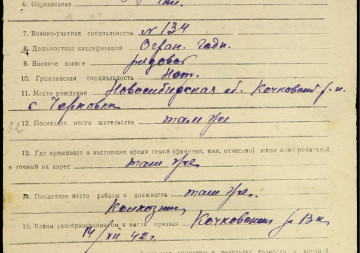 6. Образование
7. Военно-учетная специальность № 134
8. Должностная квалификация Огран. годн.
9. Военное звание рядовой
10. Гражданская специальность Нет.
11. Место рождения Новосибирская об. Кочковский р-н.
с Черновка
12. Последнее место жительства там же
13. Где проживает в настоящее время семья (фамилия, имя, отчество) жены или родителей
и точный их адрес там же.
14. Последнее место работы и должность там же.
Колхозник
15. Каким райвоенкоматом и когда призван Кочковским РВК
14/XII 42 г.